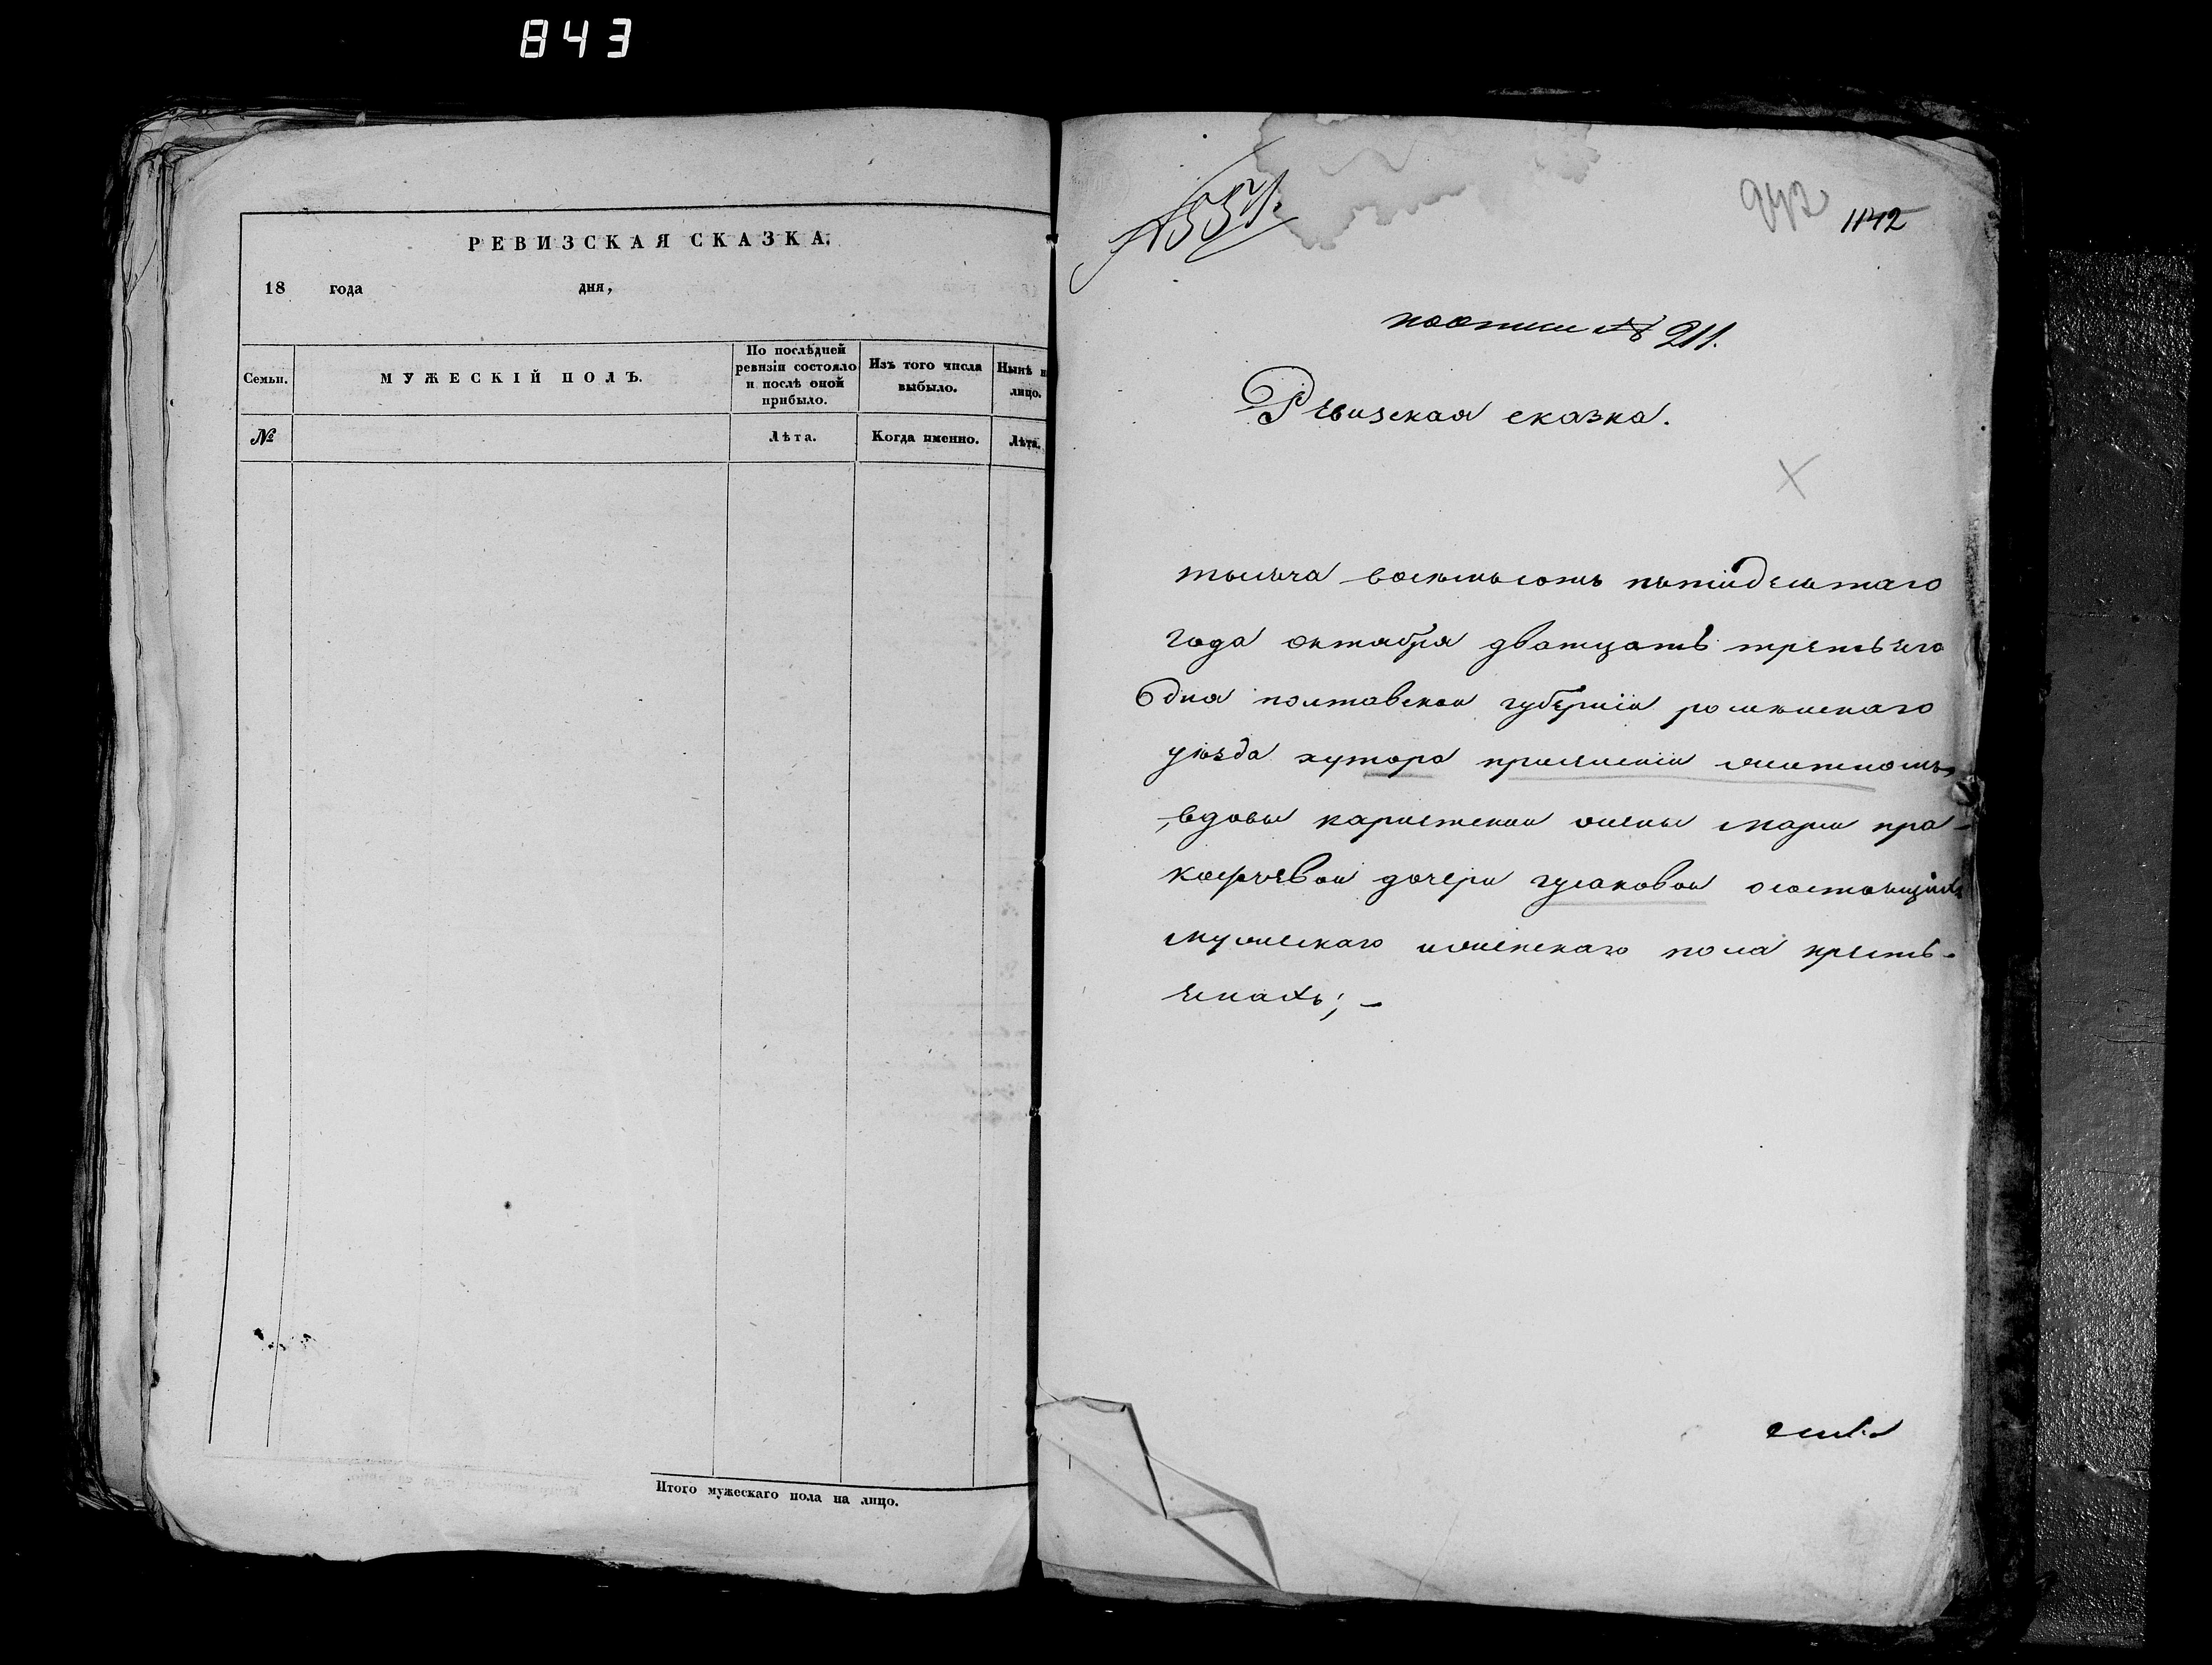 843
РЕВИЗСКАЯ СКАЗКА.
18 года дня,
Семьи.
МУЖЕСКІЙ ПОЛЪ.
По послѣдней
ревизіи состояло
и послѣ оной
прибыло.
Изъ того числа
выбыло.
Нынѣ н
лицо.
№
Лѣта.
Когда именно.
Лѣта.
Итого мужескаго пола на лицо.
942
1142
поописи № 211.
Ревизская сказка.
тысяча восемьсотъ пятидесятаго
года октября дватцать третьего
дня полтавской губерніи роменскаго
уезда хутора
вдовы жены марии про-
кофиевой дочери гусаковой осостоящихъ
мужескаго иженскаго пола кресть-
енахъ; –